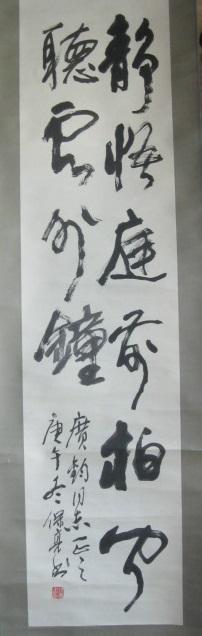 静悟庭前柏
聽雲外鐘
廣鈞同志正之
庚午冬